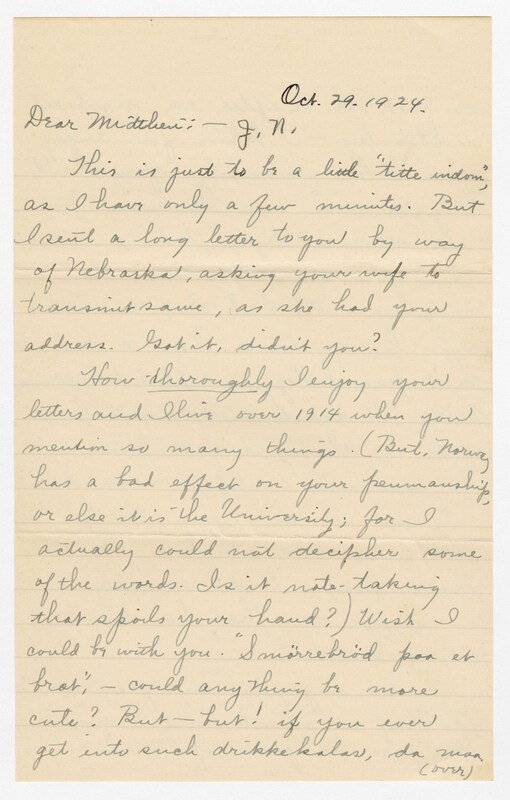 Oct. 29. 1924.
Dear Midtlien: — J. N.
This is just to be a little "titte indom",
as I have only a few minutes. But
I sent a long letter to you by way
of Nebraska, asking your wife to
transmit same, as she had your
address. Got it, didn't you?
How thoroughly I enjoy your
letters and I live over 1914 when you
mention so many things. (But, Norway
has a bad effect on your penmanship,
or else it is the University; for I
actually could not decipher some
of the words. Is it note-taking
that spoils your hand?) Wish I
could be with you. "Smörrebröd paa et
bræt", — could anything be more
cute? But — but! if you ever
get into such drikkekalas, da maa
(over)